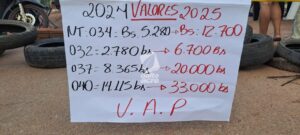 2024 VALORES 2025
NT. 034: Bs. 5.280 → Bs: 12.700
032 = 2.780 bs → 6.700 Bs
037 = 8.365 bs → 20.000 Bs
040 = 14.115 bs → 33.000 Bs
V.A.P